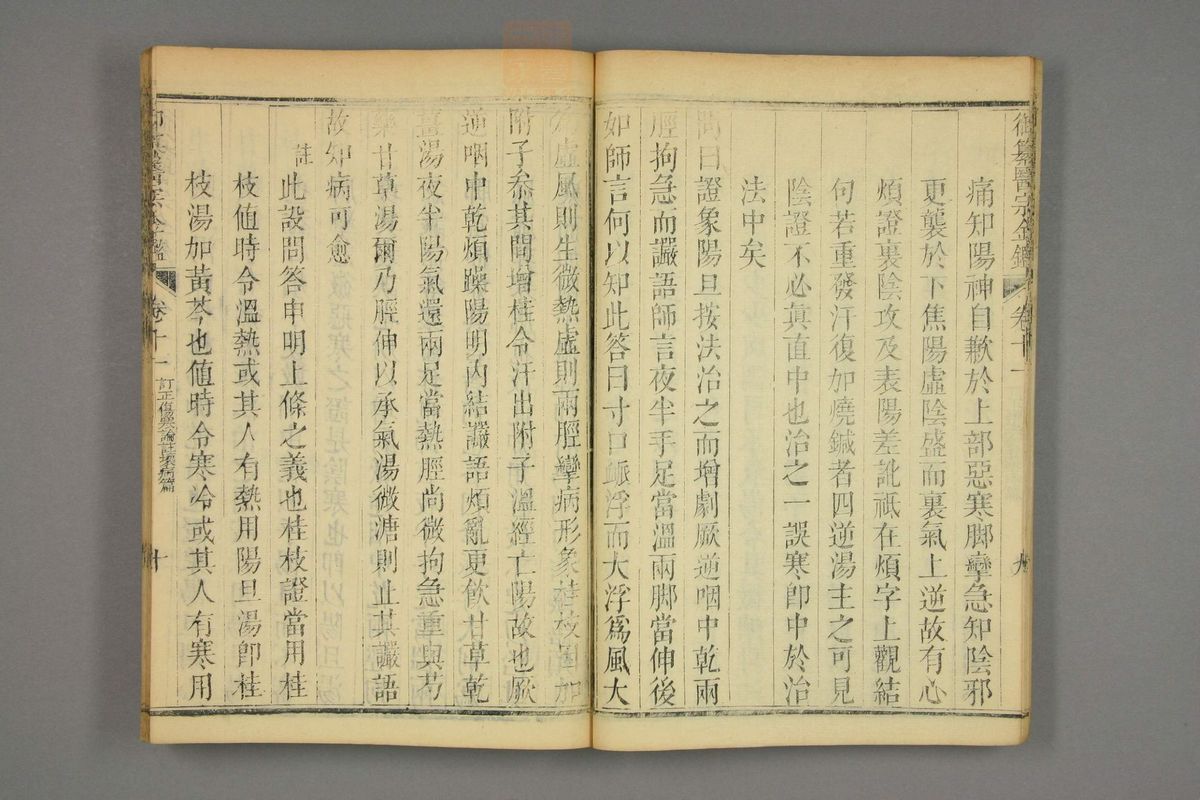 御纂醫宗金鑑 卷十一 九
痛知陽神自歉於上部惡寒脚攣急知陰邪
更襲於下焦陽虛陰盛而裏氣上逆故有心
煩證裏陰攻及表陽差訛祇在煩字上觀結
句若重發汗復加燒鍼者四逆湯主之可見
陰證不必眞直中也治之一誤寒卽中於治
法中矣
問曰證象陽旦按法治之而增劇厥逆咽中乾兩
脛拘急而讝語師言夜半手足當溫兩脚當伸後
如師言何以知此答曰寸口脈浮而大浮爲風大
爲虛風則生微熱虛則兩脛攣病形象桂枝因加
附子叅其間增桂令汗出附子溫經亡陽故也厥
逆咽中乾煩躁陽明內結讝語煩亂更飲甘草乾
薑湯夜半陽氣還兩足當熱脛尚微拘急重與芍
藥甘草湯爾乃脛伸以承氣湯微溏則止其讝語
故知病可愈
註此設問答申明上條之義也桂枝證當用桂
枝值時令溫熱或其人有熱用陽旦湯卽桂
枝湯加黃芩也值時令寒冷或其人有寒用
御纂醫宗金鑑 卷十一 訂正傷寒論註壞病篇 十